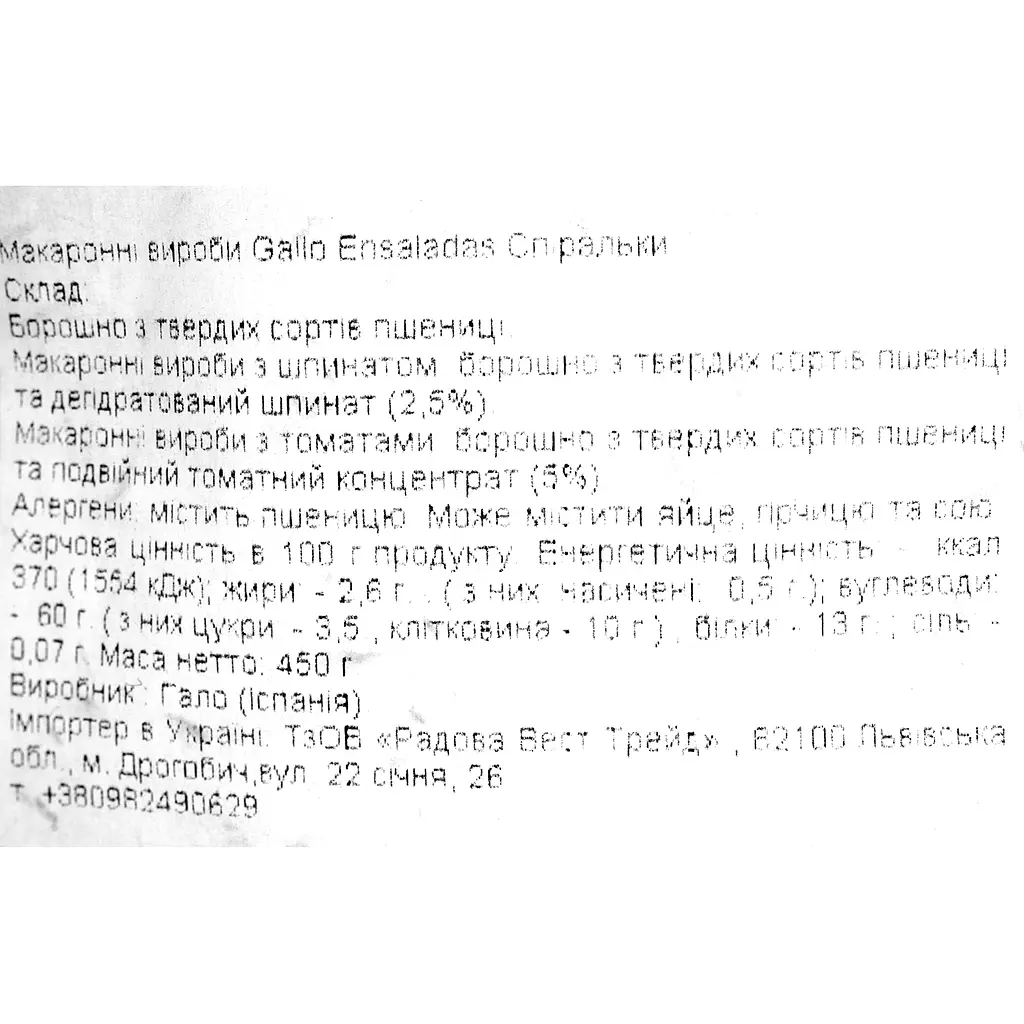 Макаронні вироби Gallo Ensaladas Спіральки
Склад:
Борошно з твердих сортів пшениці.
Макаронні вироби з шпинатом борошно з твердих сортів пшениці
та дегідратований шпинат (2,5%)
Макаронні вироби з томатами борошно з твердих сортів пшениці
та подвійний томатний концентрат (5%)
Алергени: містить пшеницю. Може містити яйце, гірчицю та сою
Харчова цінність в 100 г продукту. Енергетична цінність: - ккал
370 (1554 кДж); жири - 2,6 г. . ( з них насичені: 0,5 г.); вуглеводи:
- 60 г. ( з них цукри - 3,5 , клітковина - 10 г ) , білки - 13 г. ; сіль -
0,07 г. Маса нетто: 450 г
Виробник : Гало (Іспанія)
Імпортер в Україні: ТзОВ «Радова Вест Трейд» , 82100 Львівська
обл., м. Дрогобич,вул. 22 січня, 26
т. +380982490629